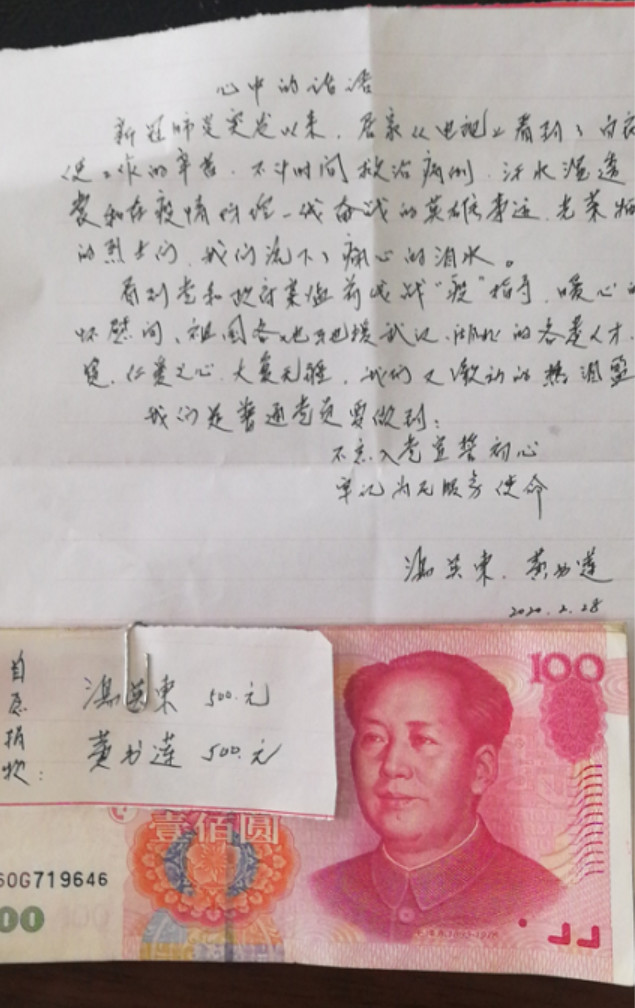 心中的话语
新冠肺炎突发以来，居家从电视上看到了白衣
使工作的辛苦，不计时间救治病例，汗水湿透
衰和在疫情防控一线奋战的英雄事迹，光荣牺
的烈士们，我们流下了痛心的泪水。
看到党和政府亲临前线战"疫"指导，暖心的
怀慰问，祖国各地支援武汉、湖北的各类人才，
仁爱之心，大爱无疆，我们又激动的热泪盈
我们是普通党员要做到：
不忘入党宣誓初心
牢记为民服务使命
冯英東、黄为莲
2020.2.28
自愿捐款：
冯英東 500.元
黄为莲 500.元
100
壹佰圆
60G719646
00